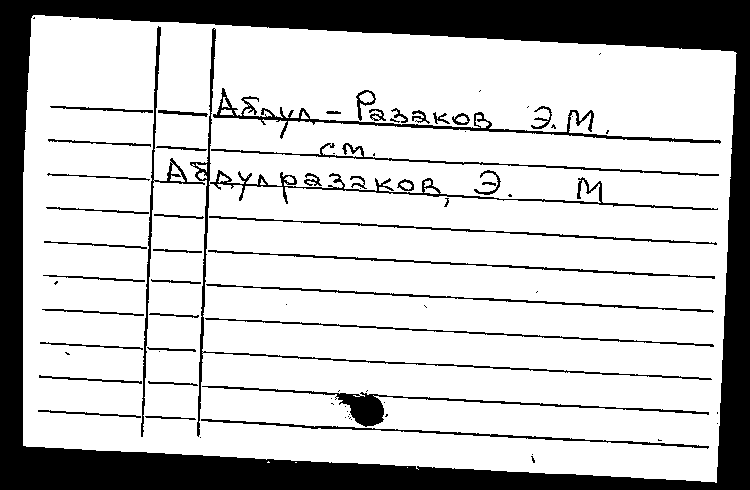 Абдул - Разаков Э.М.
см.
Абдулразаков, Э. М